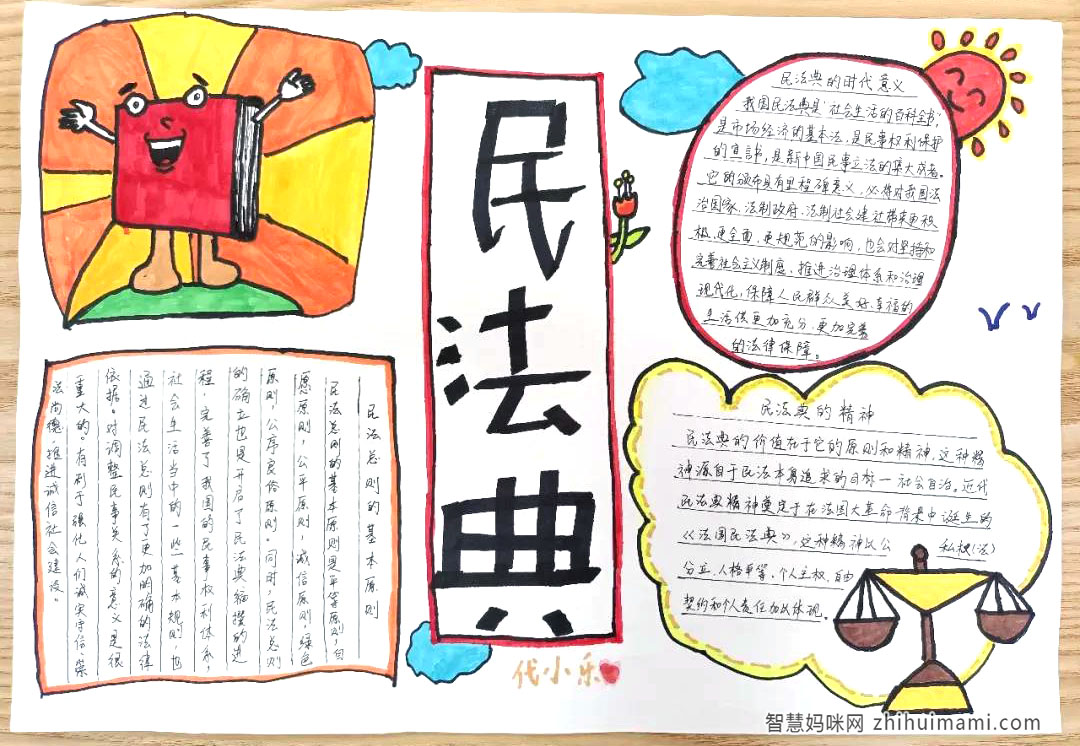 民法典
民法典的时代意义
我国民法典是"社会生活的百科全书",
是市场经济的基本法,是民事权利保护
的宣言书,是新中国民事立法的集大成者。
它的颁布具有里程碑意义,必将对我国法
治国家、法制政府、法制社会建设带来更积
极、更全面、更规范的影响,也会对坚持和
完善社会主义制度、推进治理体系和治理
现代化,保障人民群众美好、幸福的
生活供更加充分、更加完善
的法律保障。
民法总则的基本原则
民法总则的基本原则是平等原则,自
愿原则,公平原则,诚信原则,绿色
原则,公序良俗原则。同时,民法总则
的确立也是开启了民法典编撰的进
程,完善了我国的民事权利体系,
社会生活当中的一些基本规则,也
通过民法总则有了更加的确的法律
依据。对调整民事关系的意义是很
重大的。有利于强化人们诚实守信、崇
法尚德,推进诚信社会建设。
民法典的精神
民法典的价值在于它的原则和精神,这种精
神源自于民法本身追求的目标一社会自治。近代
民法典精神奠定于在法国大革命背景中诞生的
《法国民法典》,这种精神以公 私权(法)
分立、人格平等,个人主权,自由
契约和个人责任加以体现。
代小乐
智慧妈咪网 zhihuimami.com